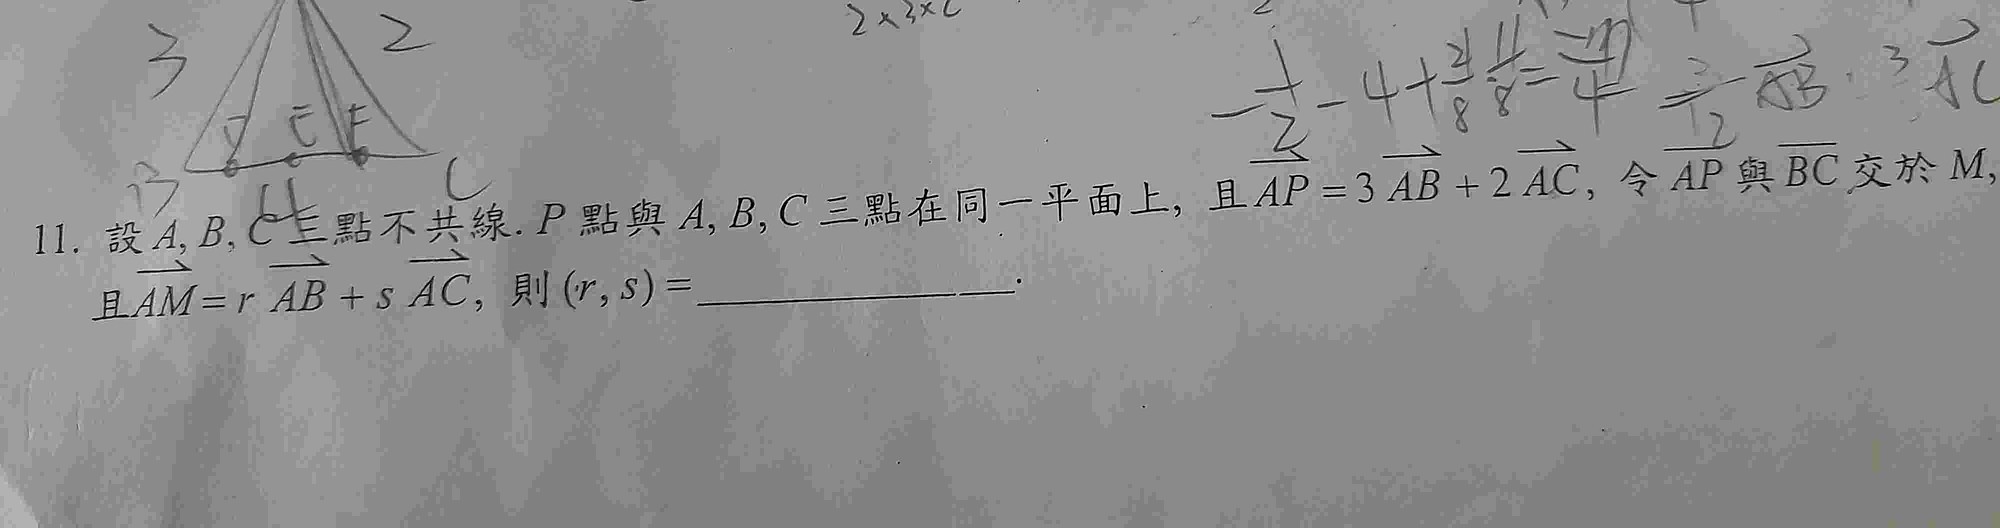 2×3×2
3
2
E
F
B
C
-1/2 - 4 + 21/8 · 11/8 = -17/4
AB · 3 AC
11. 設 A, B, C 三點不共線. P 點與 A, B, C 三點在同一平面上, 且 AP = 3 AB + 2 AC, 令 AP 與 BC 交於 M,
且 AM = r AB + s AC, 則 (r, s) = ____________.